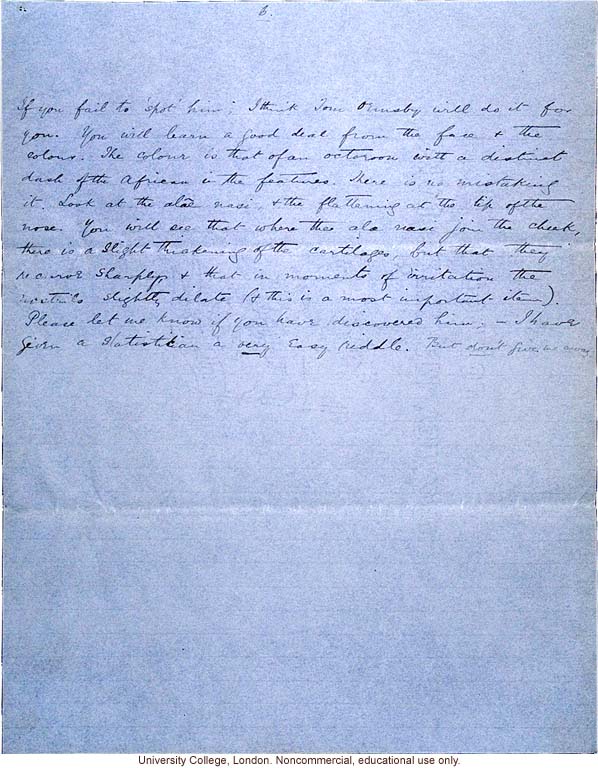 6.
If you fail to 'spot' him; I think Tom Ormsby will do it for
you. You will learn a good deal from the face & the
colour. The colour is that of an octoroon with a distinct
dash of the African in the features. There is no mistaking
it. Look at the alae nasi, & the flattening at the tip of the
nose. You will see that where the ala nasi join the cheek,
there is a slight thickening of the cartilages, but that they
recurve sharply, & that in moments of irritation the
nostrils slightly dilate (& this is a most important item).
Please let me know if you have discovered him; – I have
given a Statistician a very easy riddle. But don't give me away
University College, London. Noncommercial, educational use only.